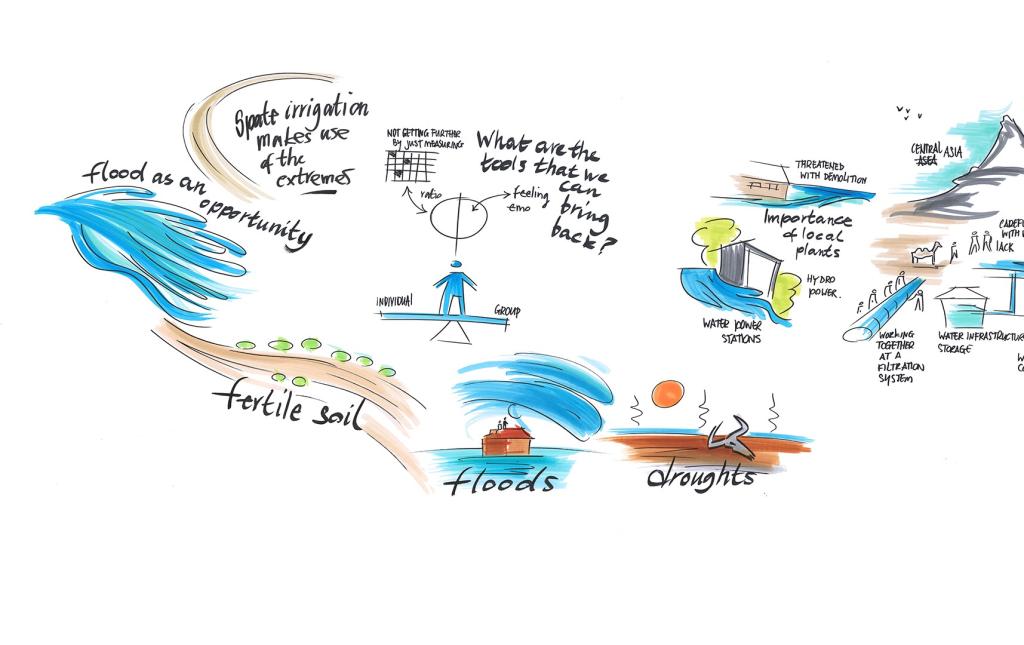 Spate irrigation
makes use
of the
extremes
flood as an
opportunity
NOT GETTING FURTHER
BY JUST MEASURING
ratio
feeling
emo
What are the
tools that we
can
bring
back?
INDIVIDUAL
GROUP
fertile soil
floods
droughts
THREATENED
WITH DEMOLITION
Importance
of local
plants
HYDRO
POWER.
WATER POWER
STATIONS
CENTRAL ASIA
WORKING
TOGETHER
AT A
FILTRATION
SYSTEM
WATER INFRASTRUCTURE
STORAGE